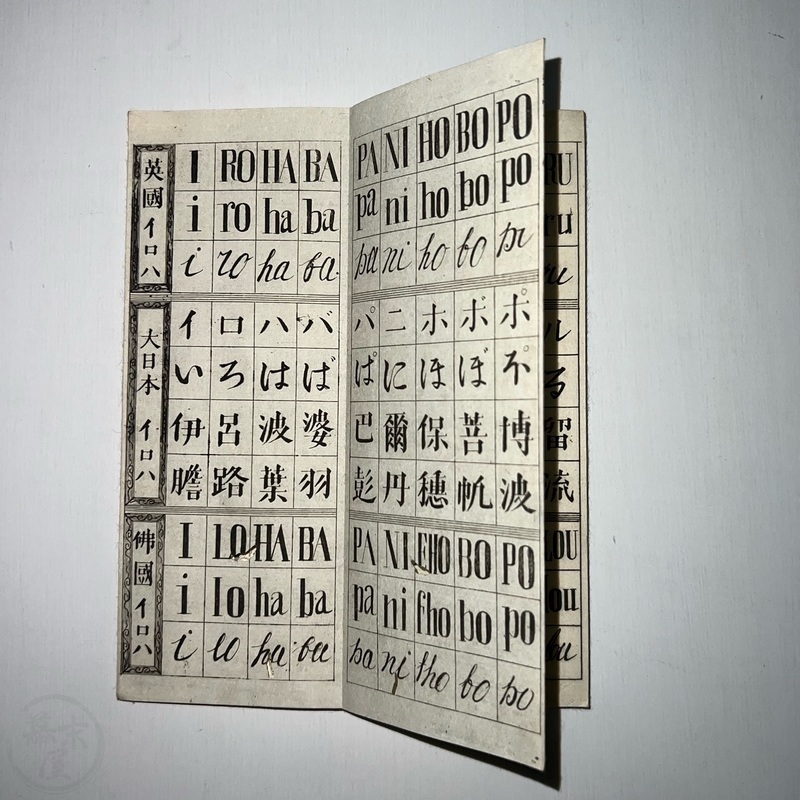 英國 イロハ
I RO HA BA PA NI HO BO PO RU
i ro ha ba pa ni ho bo po ru
i ro ha ba pa ni ho bo po ru
大日本 イロハ
イ ロ ハ バ パ ニ ホ ボ ポ ル
い ろ は ば ぱ に ほ ぼ ぽ る
伊 呂 波 婆 巴 爾 保 菩 博 留
膽 路 葉 羽 彭 丹 穗 帆 波 流
佛國 イロハ
I LO HA BA PA NI FHO BO PO LOU
i lo ha ba pa ni fho bo po lou
i lo ha ba pa ni fho bo po